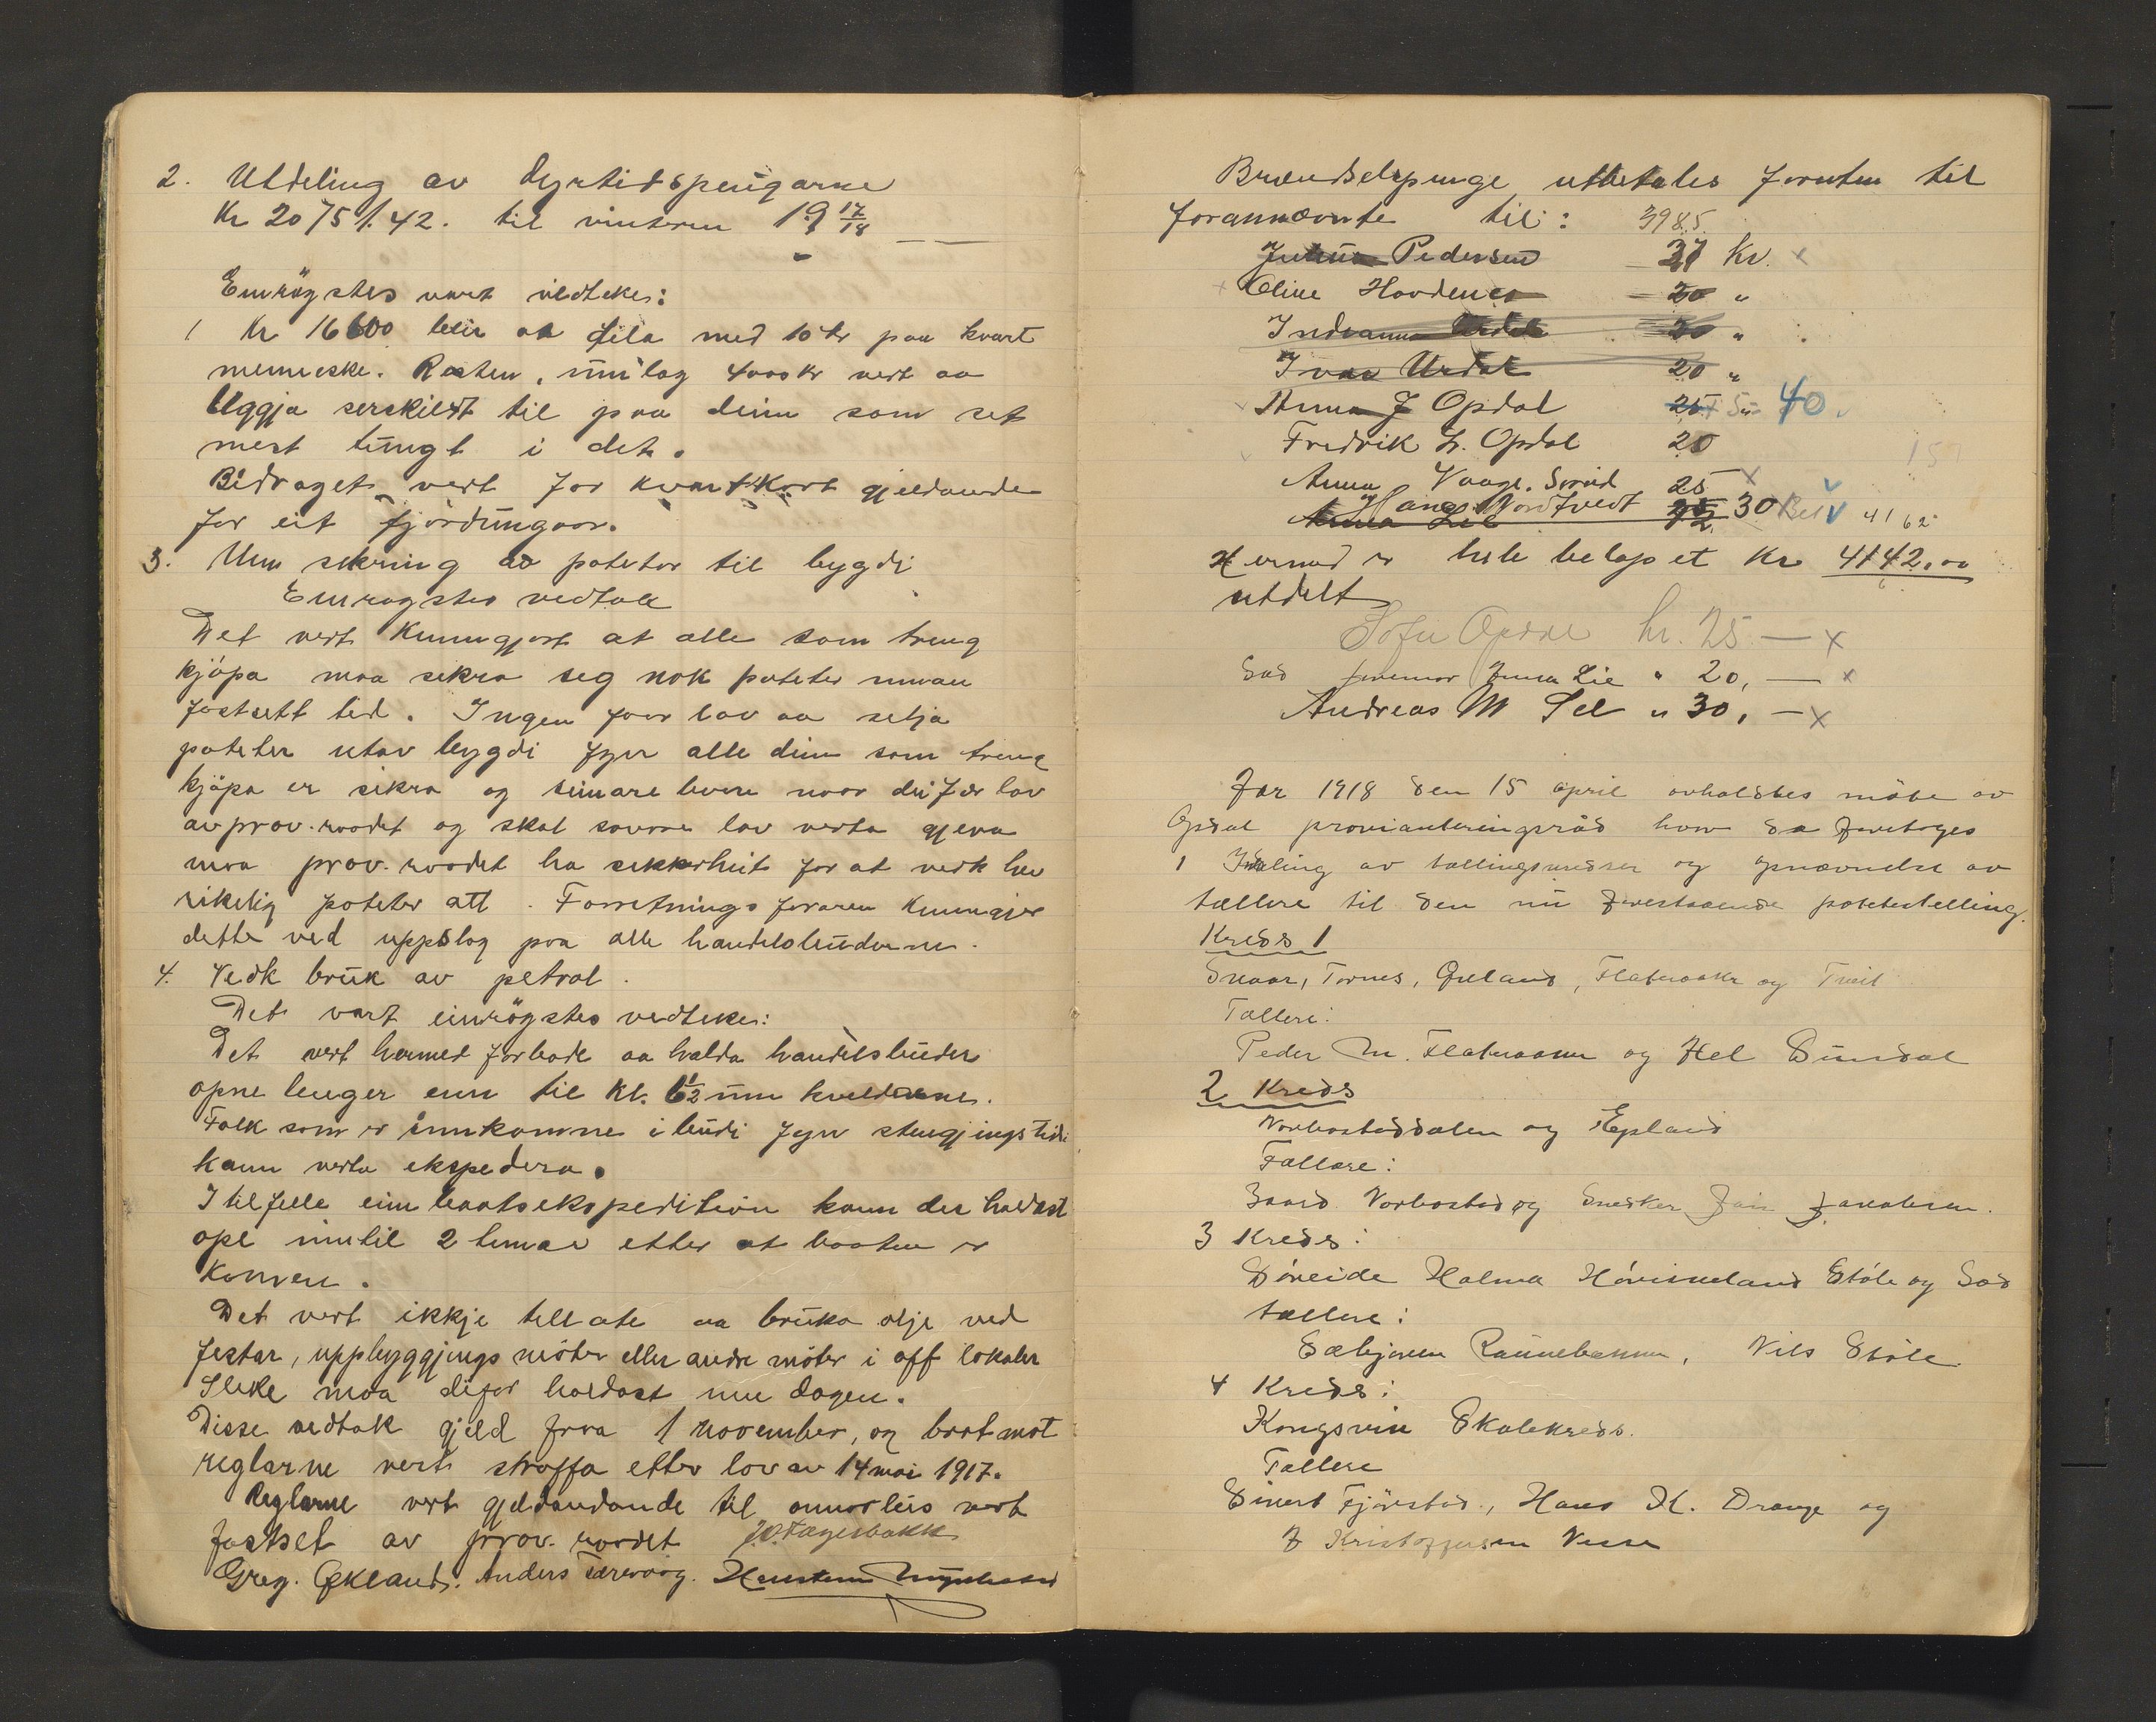 2. Utdeling av dyrtidspengarne
Kr 20751.42. til vinteren 19 17/18
Einrögstes vart vedteke:
1 Kr 16600 blir aa dela med 10 kr paa kvart
menneske. Resten, umlag 4000 kr vert aa
leggja serskildt til paa deim som set
mest tungt i det.
Bidraget vert for kvart kort gjeldande
for eit fjordungaar.
3. Um sikring av poteter til bygdi
Einrögstes vedtak
Det vert kunngjort at alle som treng
kjöpa maa sikra seg nok poteter innan
fastsett tid. Ingen faar lov aa selja
poteter utav bygdi fyrr alle deim som treng
kjöpa er sikra og seinare berre naar dei fær lov
av prov. raadet og skal saavore lov verta gjeva
maa prov. raadet ha sikkerheit for at vedk hev
rikelig poteter att. Forretningsföraren kunngjer
dette ved uppslag paa alle handelsbuderne.
4. Vedk bruk av petrol.
Det vart einrögstes vedteke:
Det vert hermed forbode aa halda handelsbuder
opne lenger enn til kl. 6 1/2 um kveldarne.
Folk som er innkomne i budi fyrr stengjingstidi
kann verta ekspedera.
I tilfelle ein baatsekspedition kann dei haldast
opi inntil 2 timar etter at baaten er
komen.
Det vert ikkje tillate aa bruka olje ved
festar, uppbyggjings möter eller andre möter i off lokaler
Slike maa difor haldast um dagen.
Disse vedtak gjeld fraa 1 november, og brot mot
reglarne vert straffa etter lov av 14 mai 1917.
Reglarne vert gjeldandande til annarleis vert
fastset av prov. raadet Fagerbakk
Greg. Økland. Anders Færevaag.
Brændselspenge utbetales foruten til
forannævnte til: 3985
Pedersen 37 Kr. x
Oline Hovdenes 20 "
Indianna Urdal 20 "
Ivar Urdal 20 "
Anna J Opdal 25 40
Fredrik L. Opdal 20
Anna Vaage. 25 x
Hans Nordtvedt 30
Anna Lie
4162
Hermed er hele belöpet Kr 4142,00
utdelt
Sofie Opdal kr. 25 — x
Lie " 20, — x
Andreas M Sel " 30, — x
Aar 1918 den 15 april avholdtes möte av
Opdal provianteringsråd hvor da foretoges
1 Inndeling av tællingskredser og opnævnelse av
tællere til den nu forestaaende potettelling.
Kreds 1
Tornes, Flatraaker og Tveit
Tællere:
Peder M. Flatraaker og Hel
2 Kreds
Vorbostaddalen og Epland
Tællere:
Baard Vorbostad og Snedker Jakobsen.
3 Kreds:
Söreide Halma Hövineland Stöle og Sæd
tællere:
Sæbjörn Nils Stöle
4 Kreds:
Kongsvin Skolekreds.
Tællere
Sivert Fjörstad, Hans K. Drange og
J Kristoffersen